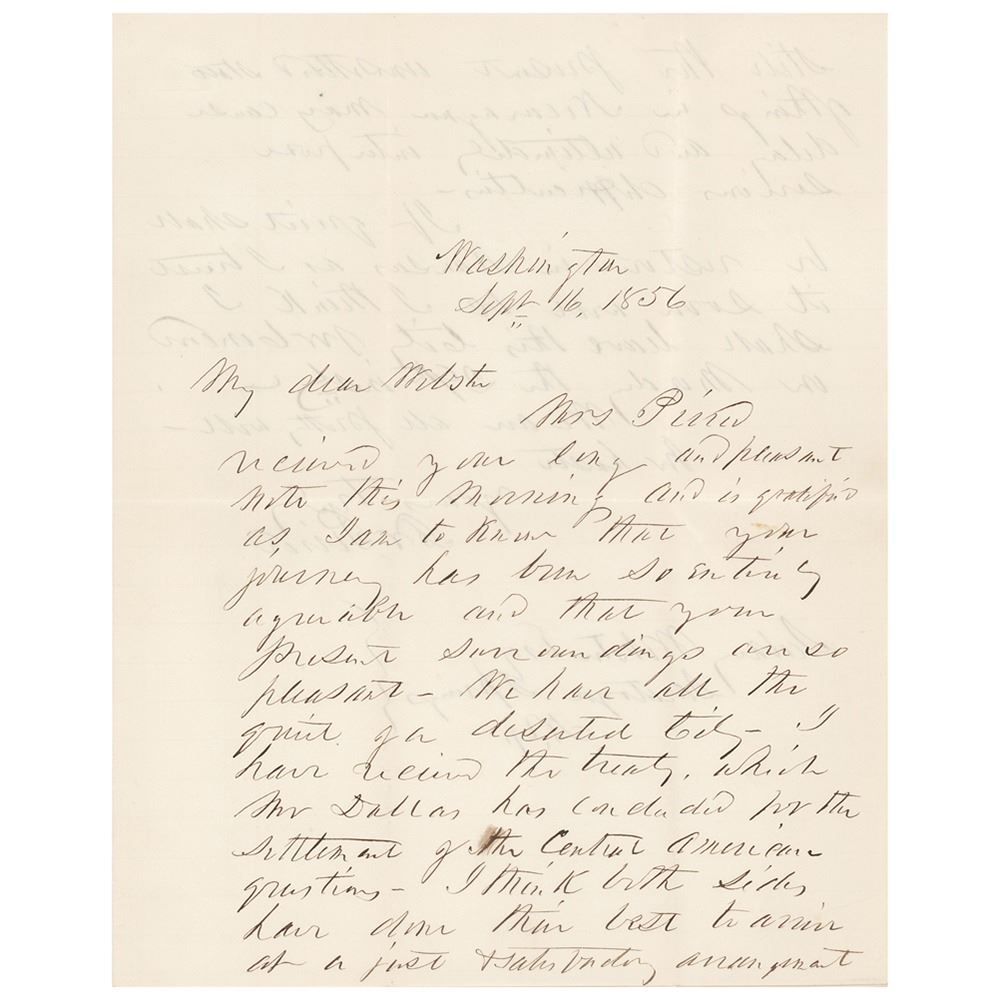 Washington
Sept 16, 1856
My dear Webster
Mrs Pierce
received your long and pleasant
note this morning and is gratified
as I am to know that your
journey has been so entirely
agreeable and that your
present surroundings are so
pleasant – We have all the
quiet of a deserted City – I
have received the treaty, which
Mr Dallas has concluded for the
settlement of the Central American
questions – I think both sides
have done their best to arrive
at a just & satisfactory arrangement